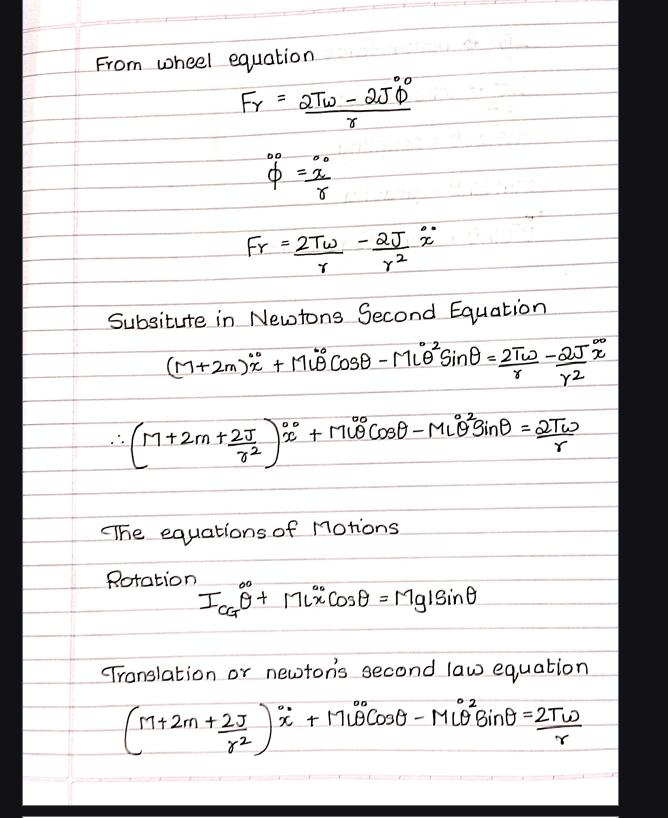 From wheel equation
Fr = (2Tω - 2Jφ̈)/r
φ̈ = ẍ/r
Fr = 2Tω/r - 2J/r² ẍ
Subsitute in Newtons Second Equation
(M+2m)ẍ + MLθ̈ Cosθ - MLθ̇² Sinθ = 2Tω/r - 2J/r² ẍ
∴ (M+2m+2J/r²)ẍ + MLθ̈ Cosθ - MLθ̇² Sinθ = 2Tω/r
The equations of Motions
Rotation
I_CG θ̈ + MLẍ Cosθ = Mgl Sinθ
Translation or newton's second law equation
(M+2m+2J/r²)ẍ + MLθ̈ Cosθ - MLθ̇² Sinθ = 2Tω/r